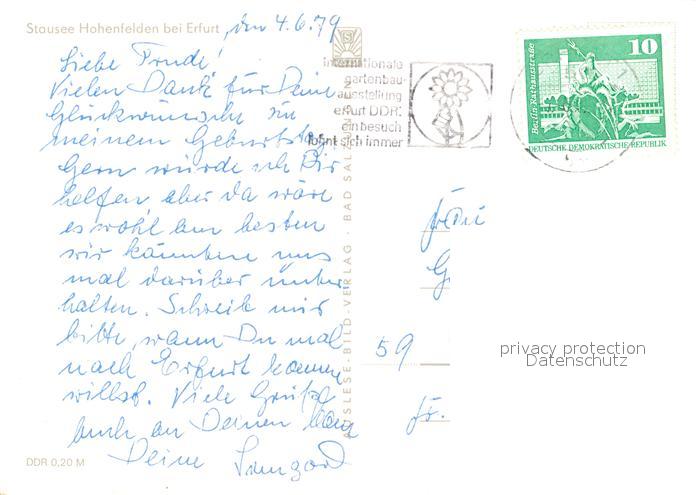 Stausee Hohenfelden bei Erfurt, den 4.6.79
Liebe Trude!
Vielen Dank für Deine
Glückwünsche zu
meinem Geburtstag.
Gern würde ich Dir
helfen aber da wäre
es wohl am besten
wir könnten uns
mal darüber unter
halten. Schreib mir
bitte, wann Du mal
nach Erfurt kommen
willst. Viele Grüße
auch an Deinen Mann
Deine
DDR 0,20 M
AUSLESE-BILD-VERLAG · BAD SALZUNGEN
internationale
gartenbau-
ausstellung
erfurt DDR:
ein besuch
lohnt sich immer
10
Berlin, Rathausstraße
DEUTSCHE DEMOKRATISCHE REPUBLIK
G
59
privacy protection
Datenschutz
Fr.